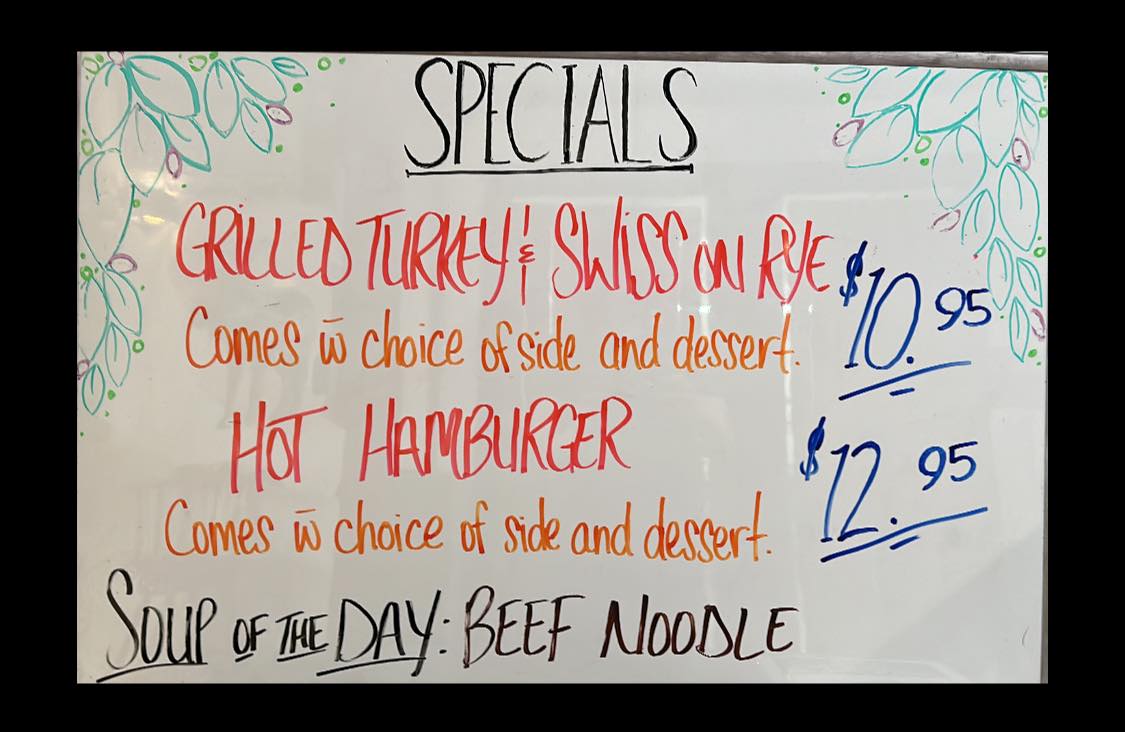 SPECIALS
GRILLED TURKEY & SWISS ON RYE $10.95
Comes w̄ choice of side and dessert.
HOT HAMBURGER $12.95
Comes w̄ choice of side and dessert.
SOUP OF THE DAY: BEEF NOODLE